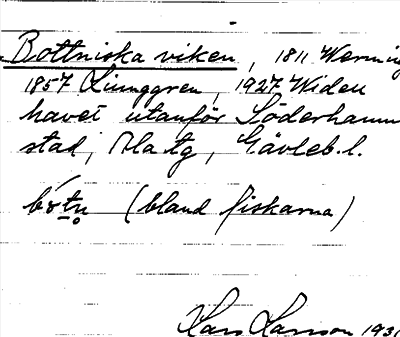 Bottniska viken, 1811 Werming
1857 Ljunggren, 1927 Widell
havet utanför Söderhamn
stad, Ala tg, Gävleb. l.
bótn̥ (bland fiskarna)
Hans Larsson 1931